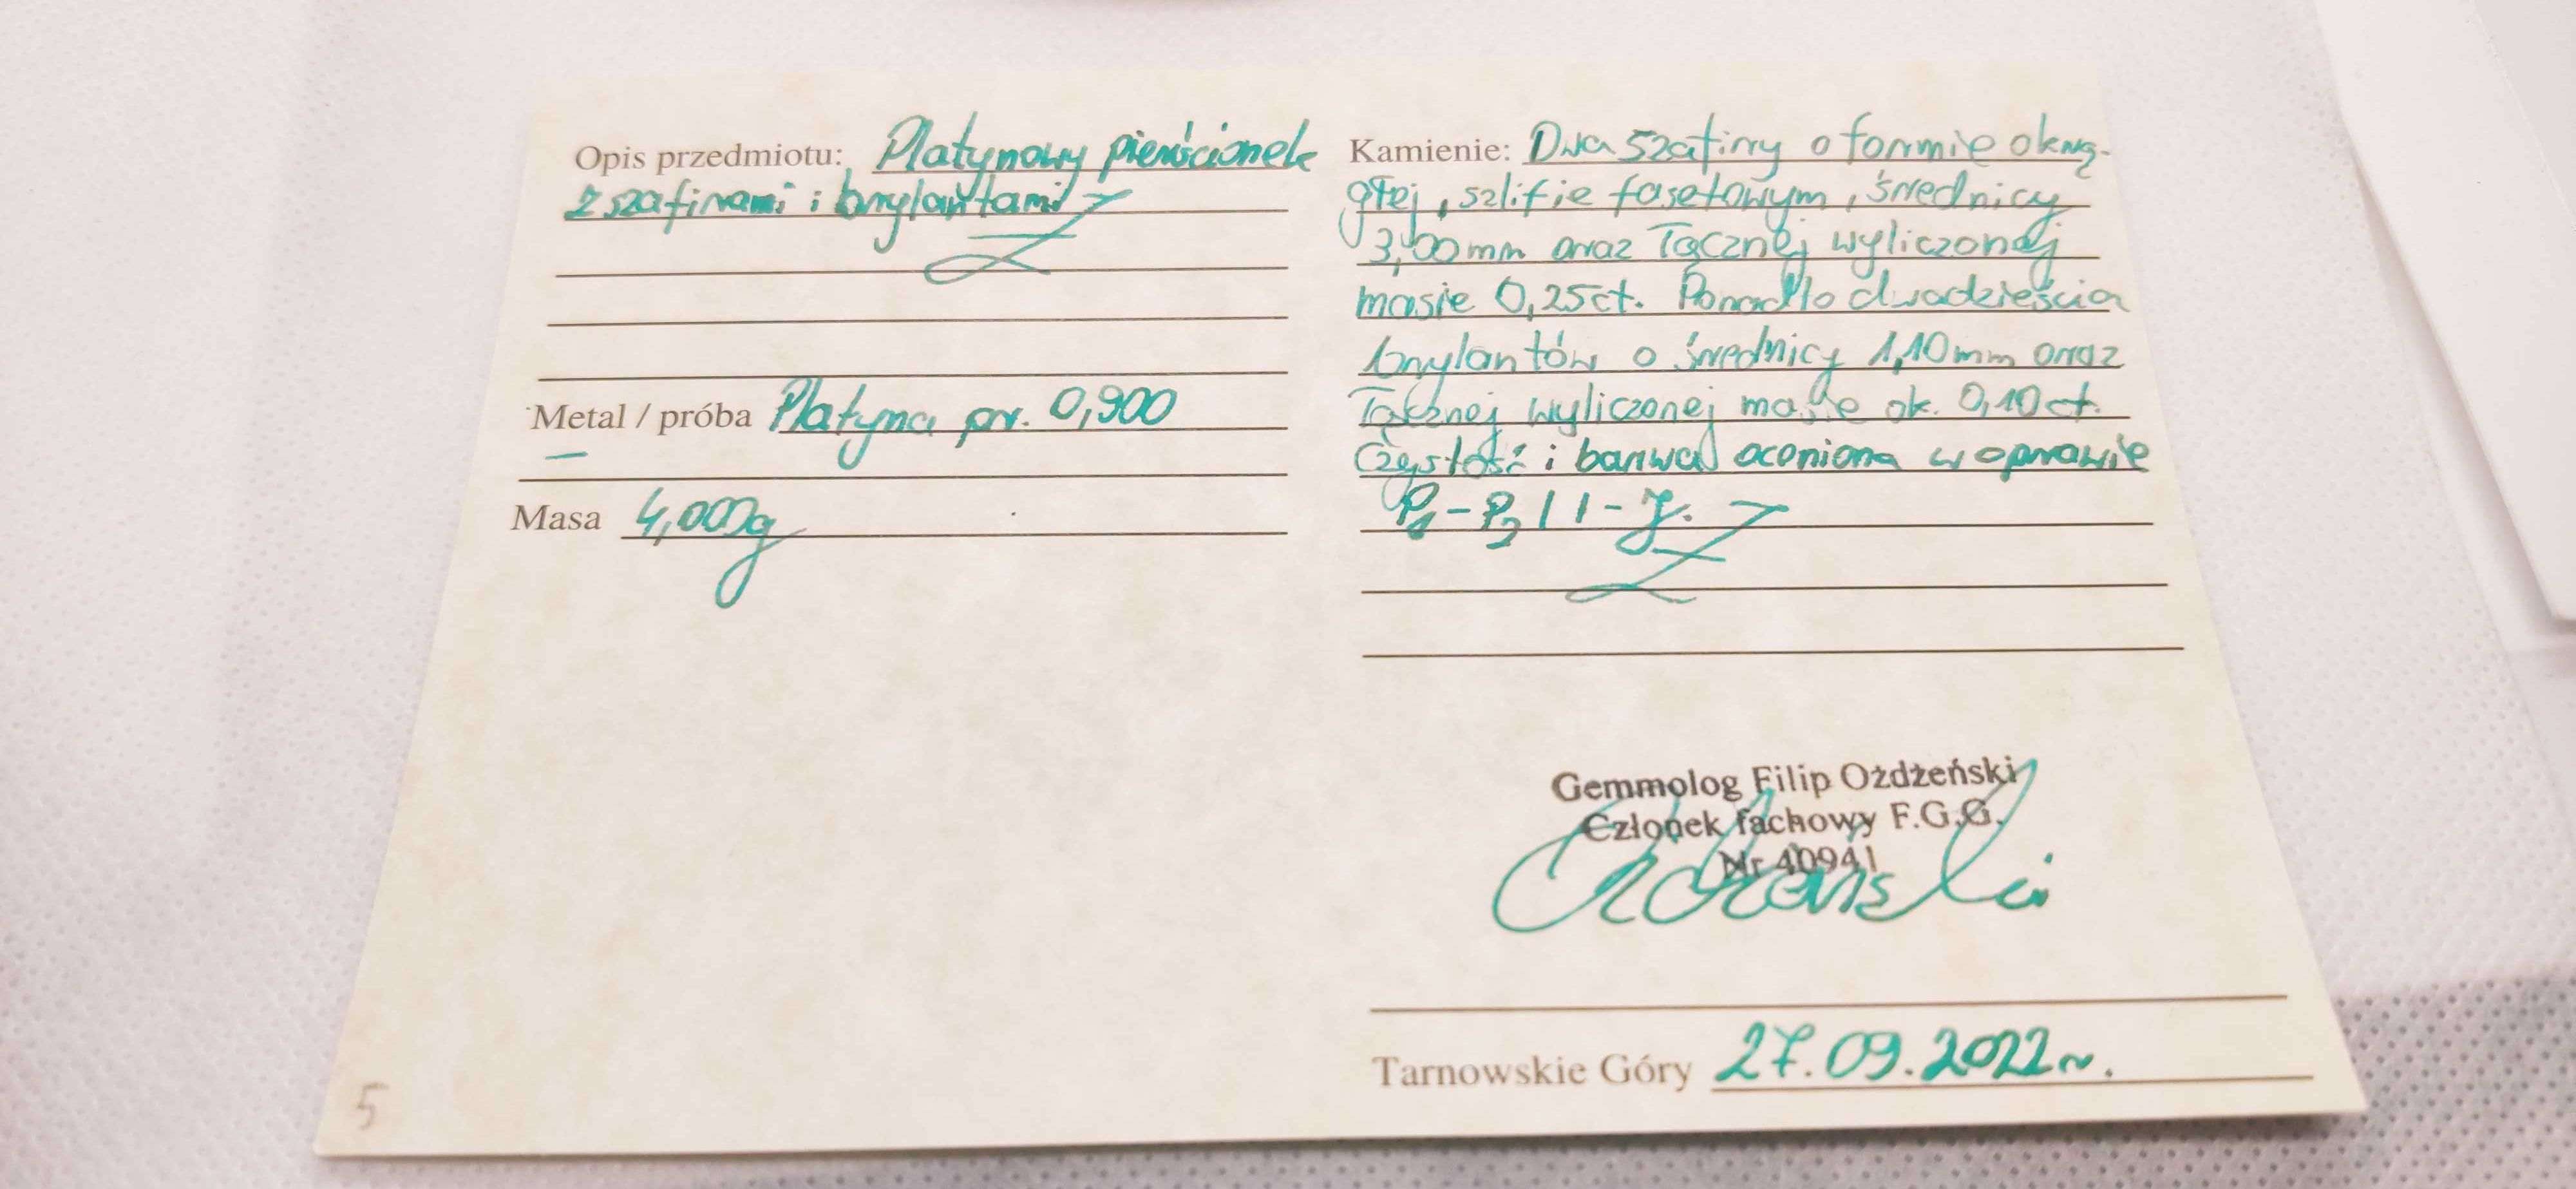 Opis przedmiotu: Platynowy pierścionek
z szafirami i brylantami
Metal / próba Platyna pr. 0,900
—
Masa 4,00g
Kamienie: Dwa szafiry o formie okrą-
głej, szlifie fasetowym, średnicy
3,00mm oraz łącznej wyliczonej
masie 0,25ct. Ponadto dwadzieścia
brylantów o średnicy 1,10mm oraz
łącznej wyliczonej masie ok. 0,10ct.
Czystość i barwa oceniona w oprawie
P1-P2 / I-J.
Gemmolog Filip Ożdżeński
Członek fachowy F.G.G.
Nr 40941
Tarnowskie Góry 27.09.2022r.
5